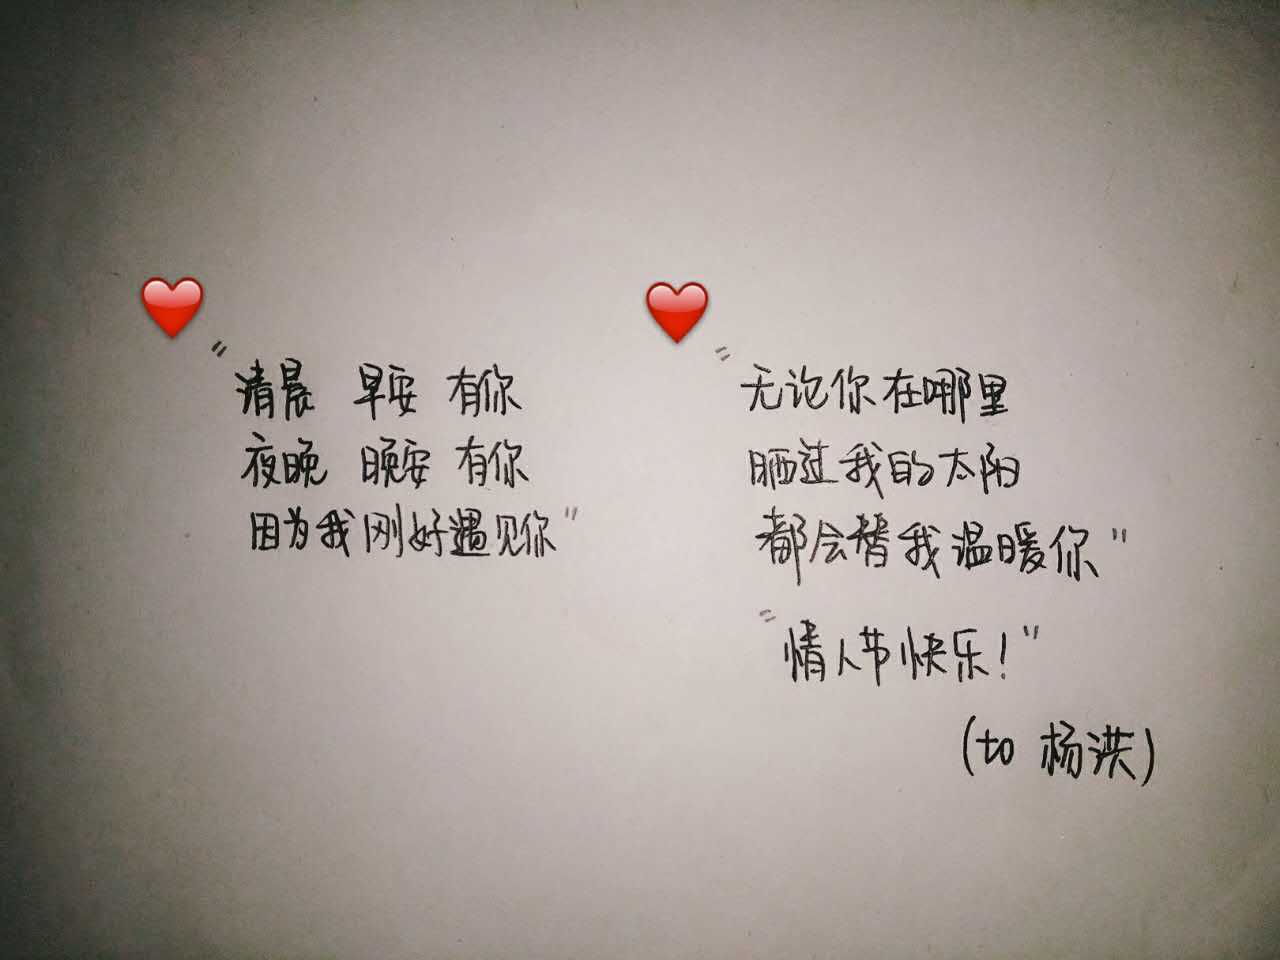 "清晨 早安 有你
夜晚 晚安 有你
因为我刚好遇见你"
"无论你在哪里
晒过我的太阳
都会替我温暖你"
"情人节快乐!"
(to 杨洪)